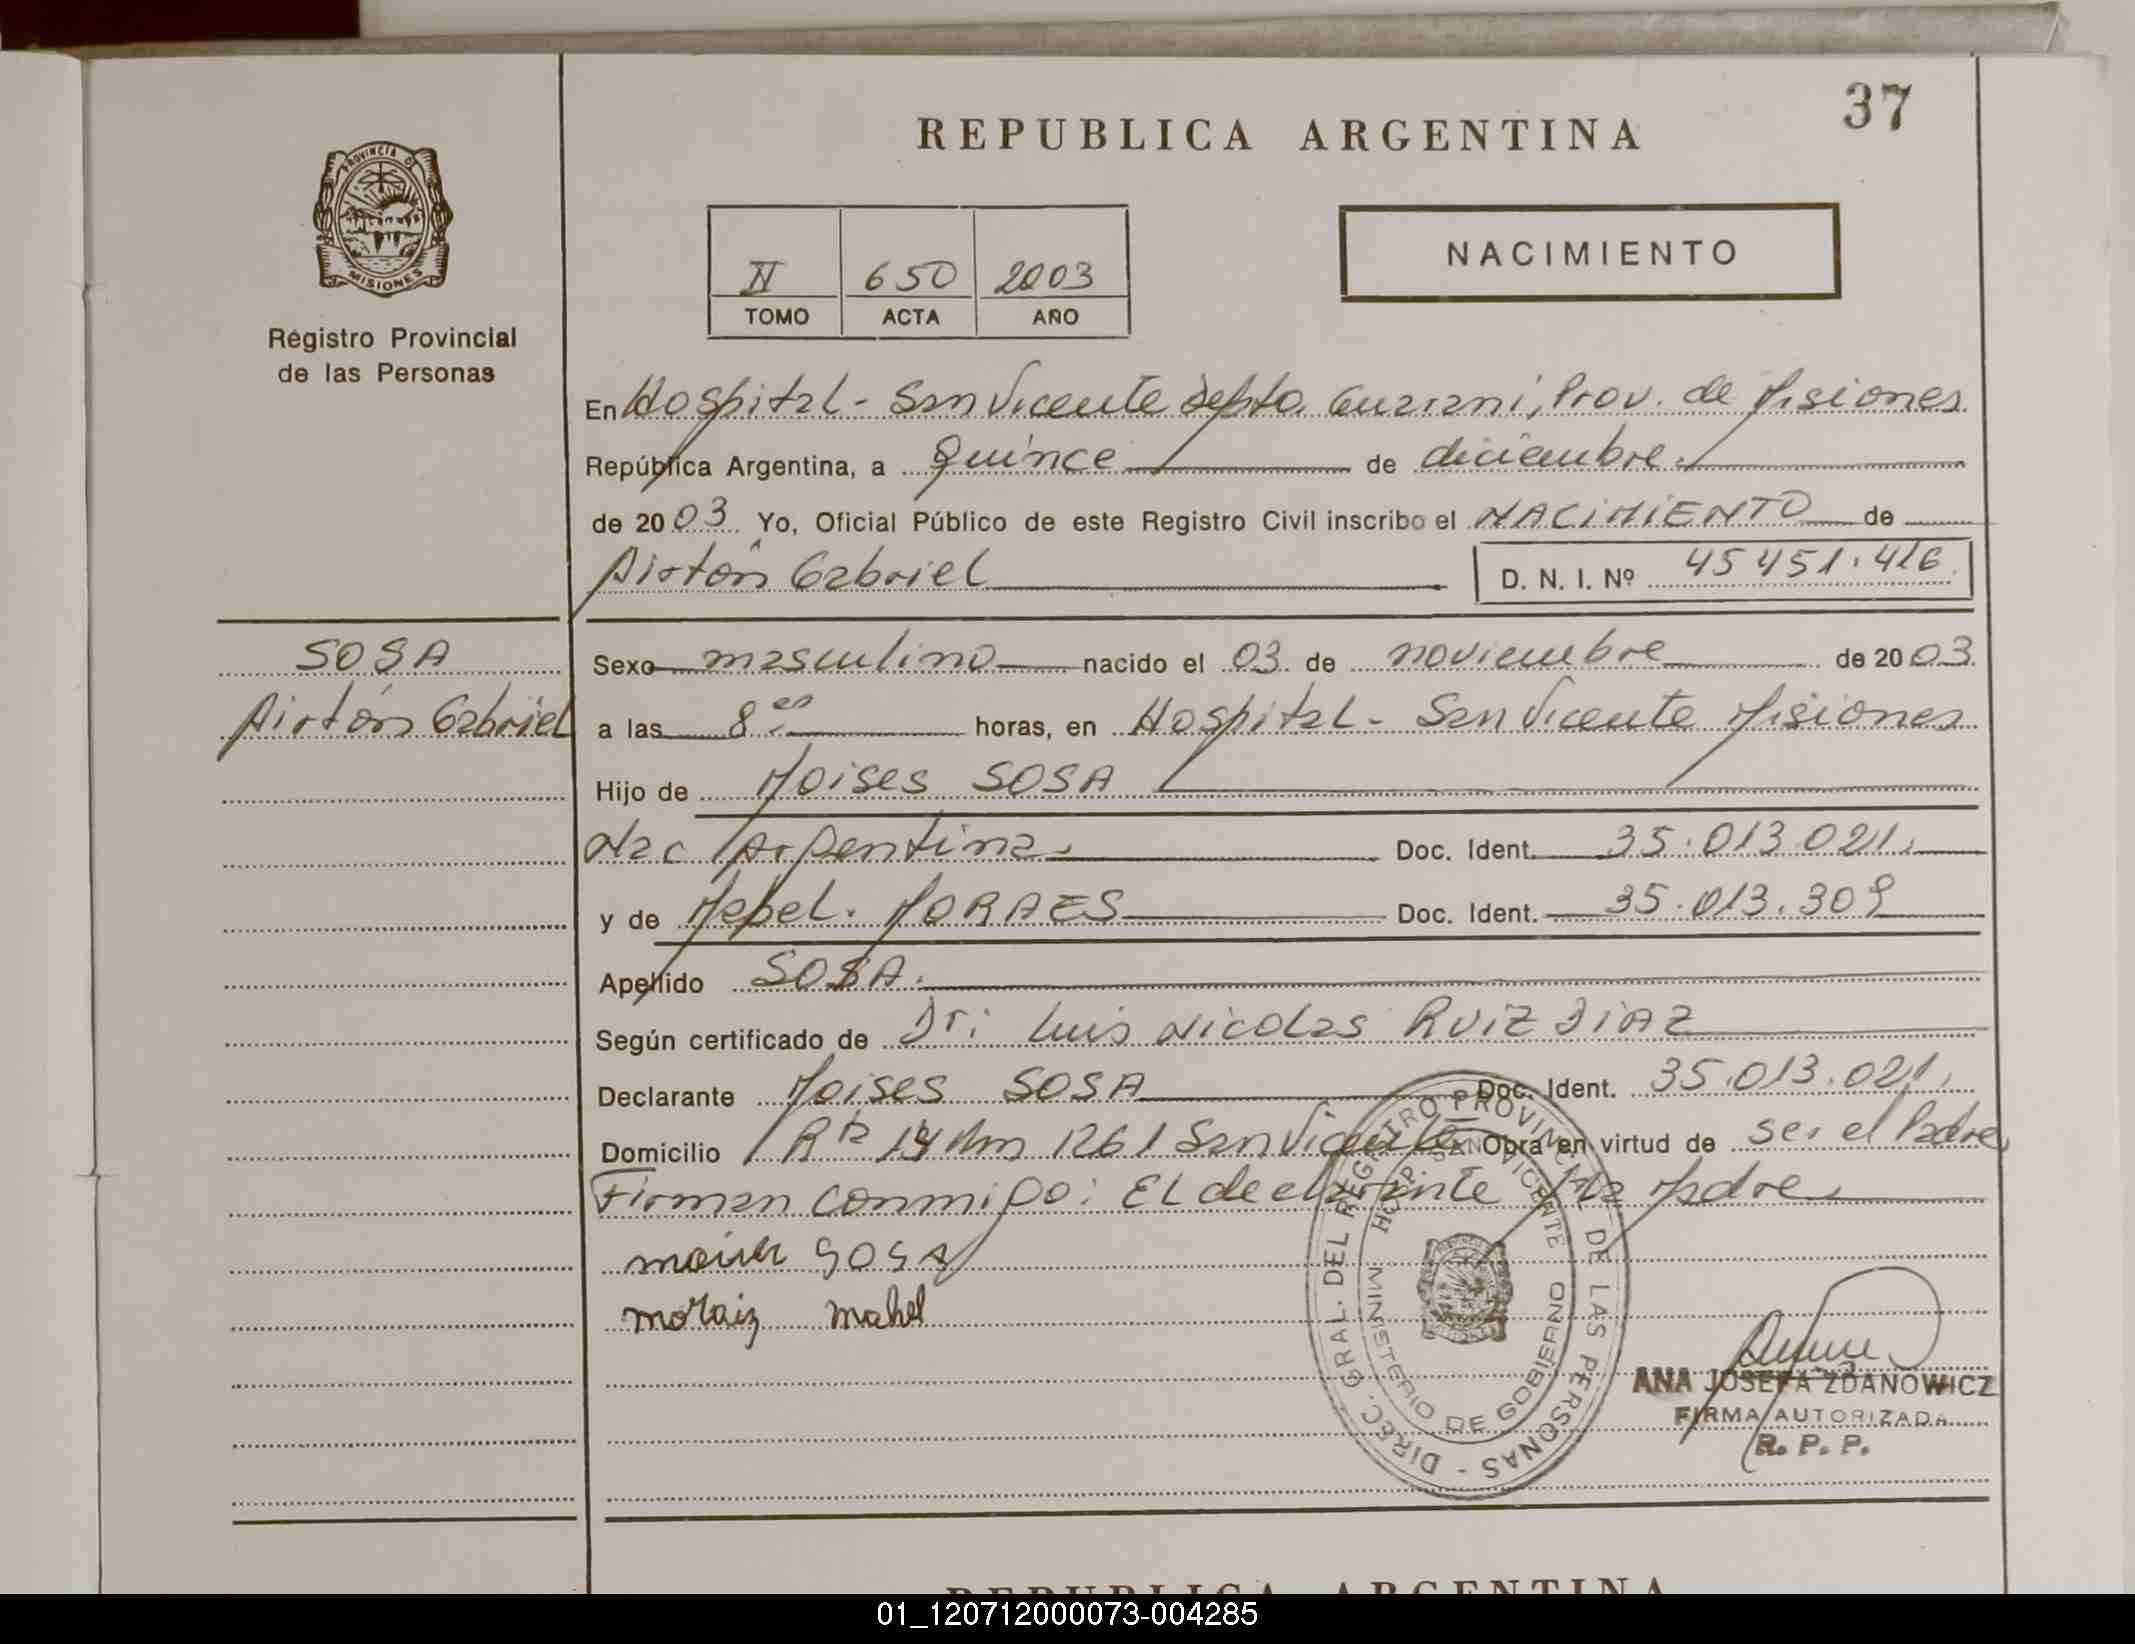 37
REPUBLICA ARGENTINA
PROVINCIA DE
MISIONES
Registro Provincial
de las Personas
NACIMIENTO
II 650 2003
TOMO ACTA AÑO
En Hospital - San Vicente Depto Guarani, Prov. de Misiones
República Argentina, a Quince de diciembre.
de 2003 Yo, Oficial Público de este Registro Civil inscribo el NACIMIENTO de
Airton Gabriel D. N. I. Nº 45 451.416
SOSA
Airton Gabriel
Sexo masculino nacido el 03 de noviembre de 2003
a las 8 horas, en Hospital - San Vicente Misiones
Hijo de Moises SOSA
Nac Argentina. Doc. Ident. 35.013.021.
y de Mabel. MORAES Doc. Ident. 35.013.309
Apellido SOSA.
Según certificado de Dr: Luis Nicolas RUIZ DIAZ
Declarante Moises SOSA Doc. Ident. 35.013.021.
Domicilio Rta 14 Km 1261 San Vicente Obra en virtud de ser el Padre
Firman conmigo: El declarante y la Madre.
SOSA
moraiz mabel
DIREC. GRAL. DEL REGISTRO PROVINCIAL DE LAS PERSONAS -
HOSP. SAN VICENTE
MINISTERIO DE GOBIERNO
ANA JOSEFA ZDANOWICZ
FIRMA AUTORIZADA
R. P. P.
REPUBLICA ARGENTINA
01_120712000073-004285